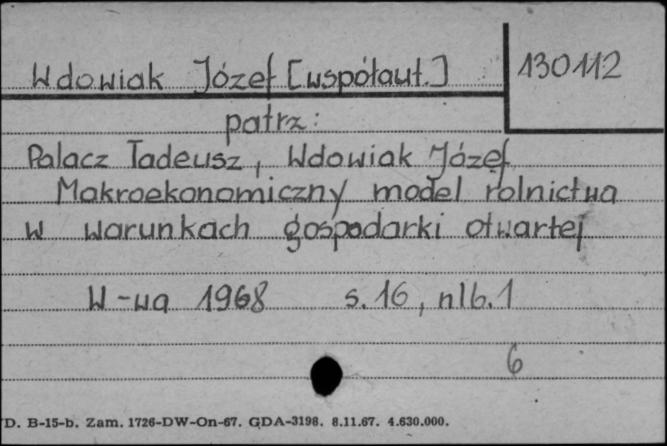 Wdowiak Józef [współaut.] 130112
patrz:
Palacz Tadeusz, Wdowiak Józef
Makroekonomiczny model rolnictwa
w warunkach gospodarki otwartej
W-wa 1968 s. 16, nlb. 1
6
D. B-15-b. Zam. 1726-DW-On-67. GDA-3198. 8.11.67. 4.630.000.